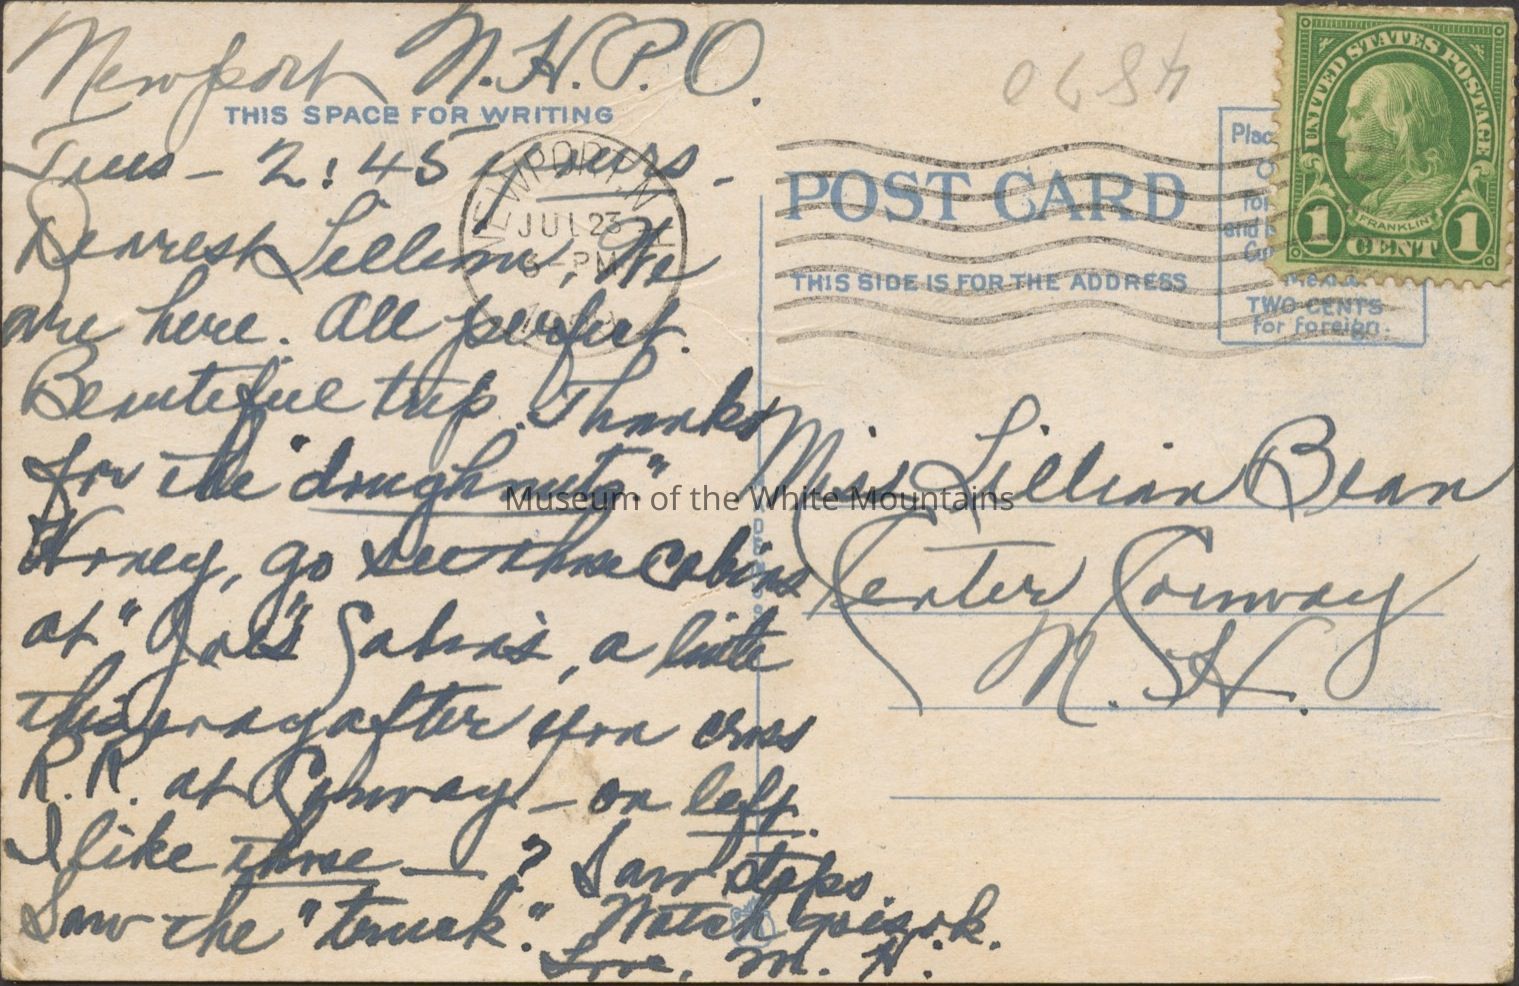 Newport N.H. P.O.
THIS SPACE FOR WRITING
Tues - 2:45 yours -
Dearest Lillian, We
are here. All perfect.
Beautiful trip. Thanks
for the "doughnuts."
Honey, go see those cabins
at "Joe's" Cabins, a little
this way after you cross
R.R. at Conway - on left.
I like those — ? Saw steps.
Saw the "truck". Watch is o.k.
Love, M. H.
NEWPORT, N.H.
JUL 23
6 - PM
0684
POST CARD
THIS SIDE IS FOR THE ADDRESS
Plac
for
and
TWO CENTS
for foreign.
UNITED STATES POSTAGE
FRANKLIN
1 CENT 1
Miss Lillian Bean
Center Conway
N. H.
Museum of the White Mountains